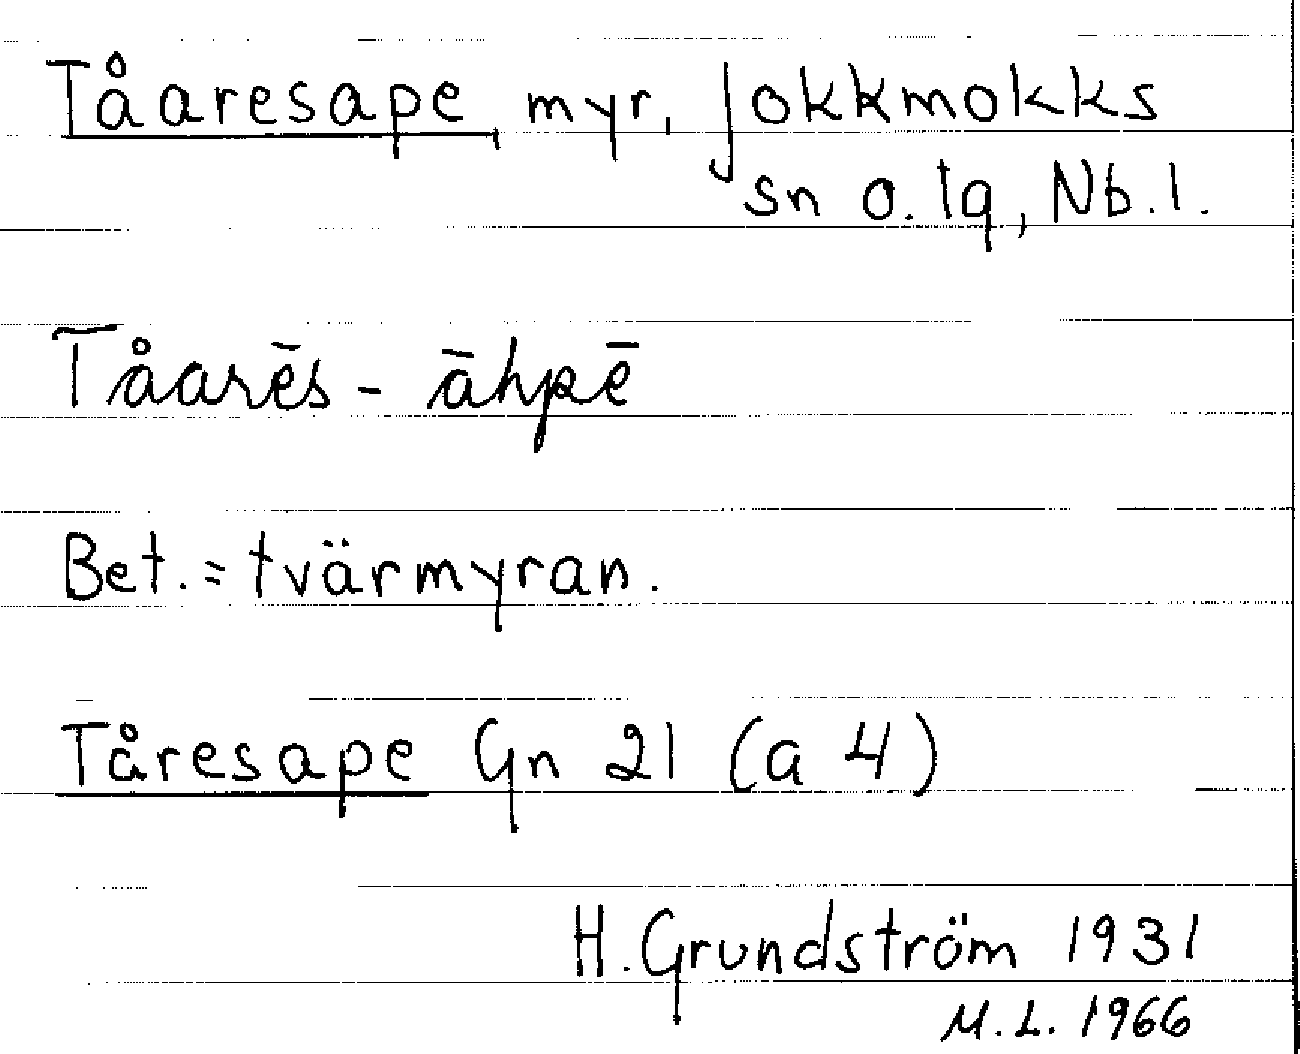 Tåaresape, myr, Jokkmokks
sn o. lq, Nb. l.
Tåarēs - āhpē
Bet. = tvärmyran.
Tåresape Gn 21 (a 4)
H. Grundström 1931
M. L. 1966